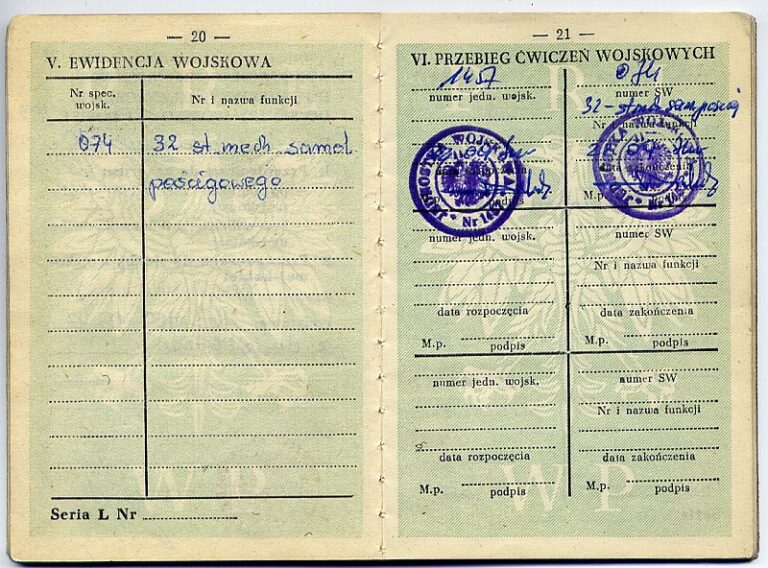 — 20 —
V. EWIDENCJA WOJSKOWA
Nr spec. wojsk.
Nr i nazwa funkcji
074 32 st mech samol
pościgowego
Seria L Nr
— 21 —
VI. PRZEBIEG ĆWICZEŃ WOJSKOWYCH
1457
074
numer jedn. wojsk.
numer SW
32-st
Nr i nazwa funkcji
JEDNOSTKA WOJSKOWA
Nr 145
JEDNOSTKA WOJSK
Nr 14
data zakończenia
M.p.
numer jedn. wojsk.
numer SW
Nr i nazwa funkcji
data rozpoczęcia
data zakończenia
M.p. podpis
M.p. podpis
numer jedn. wojsk.
numer SW
Nr i nazwa funkcji
data rozpoczęcia
data zakończenia
M.p. podpis
M.p. podpis
W P
W P